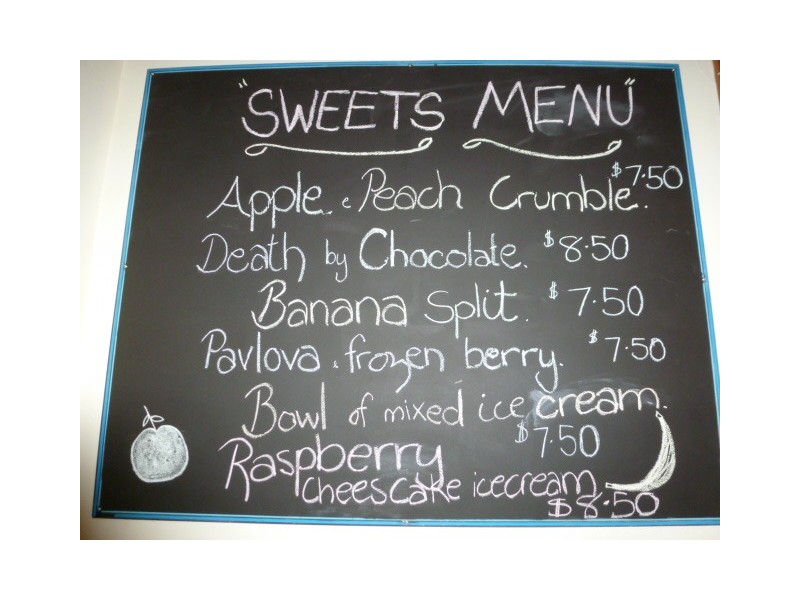 "SWEETS MENU"
Apple & Peach Crumble. $7.50
Death by Chocolate. $8.50
Banana Split. $7.50
Pavlova & frozen berry. $7.50
Bowl of mixed ice cream.
$7.50
Raspberry
cheescake icecream
$8.50